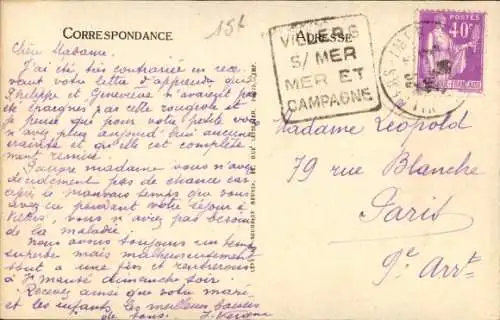 CORRESPONDANCE
ADRESSE
15f
VILLERS
S/ MER
MER ET
CAMPAGNE
POSTES
40c
Chère Madame.
J'ai été très contrariée en rece
vant votre lettre d'apprendre que
Philippe et Geneviève n'avaient pas
été épargnés par cette rougeole et
je pense que pour votre petite vous
n'avez plus aujourd'hui aucune
crainte et qu'elle est complète
ment remise.
Pauvre madame vous n'avez
décidément pas de chance car
après le mauvais temps que vous
avez eu pendant votre séjour à
Villers, vous n'aviez pas besoin
de la maladie.
Nous avons toujours un temps
superbe mais malheureusement
tout a une fin et rentrerons
à St Mandé dimanche soir.
Recevez ainsi que votre mari
et les enfants les meilleurs baisers
de tous.
Madame Léopold
79 rue Blanche
Paris
9e Arrt